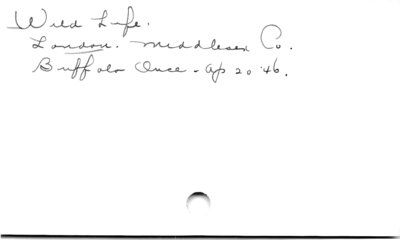 Wild Life.
London. Middlesex Co.
Buffalo Once - Ap 20 '46.